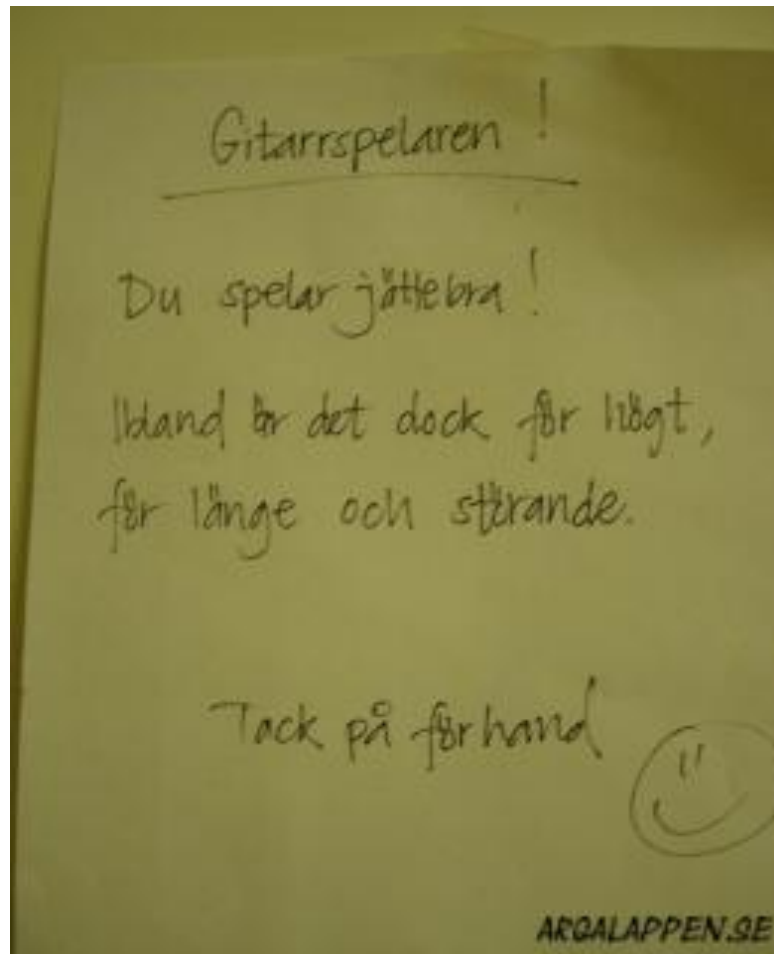 Gitarrspelaren !
Du spelar jättebra !
Ibland är det dock för högt,
för länge och störande.
Tack på förhand
ARGALAPPEN.SE